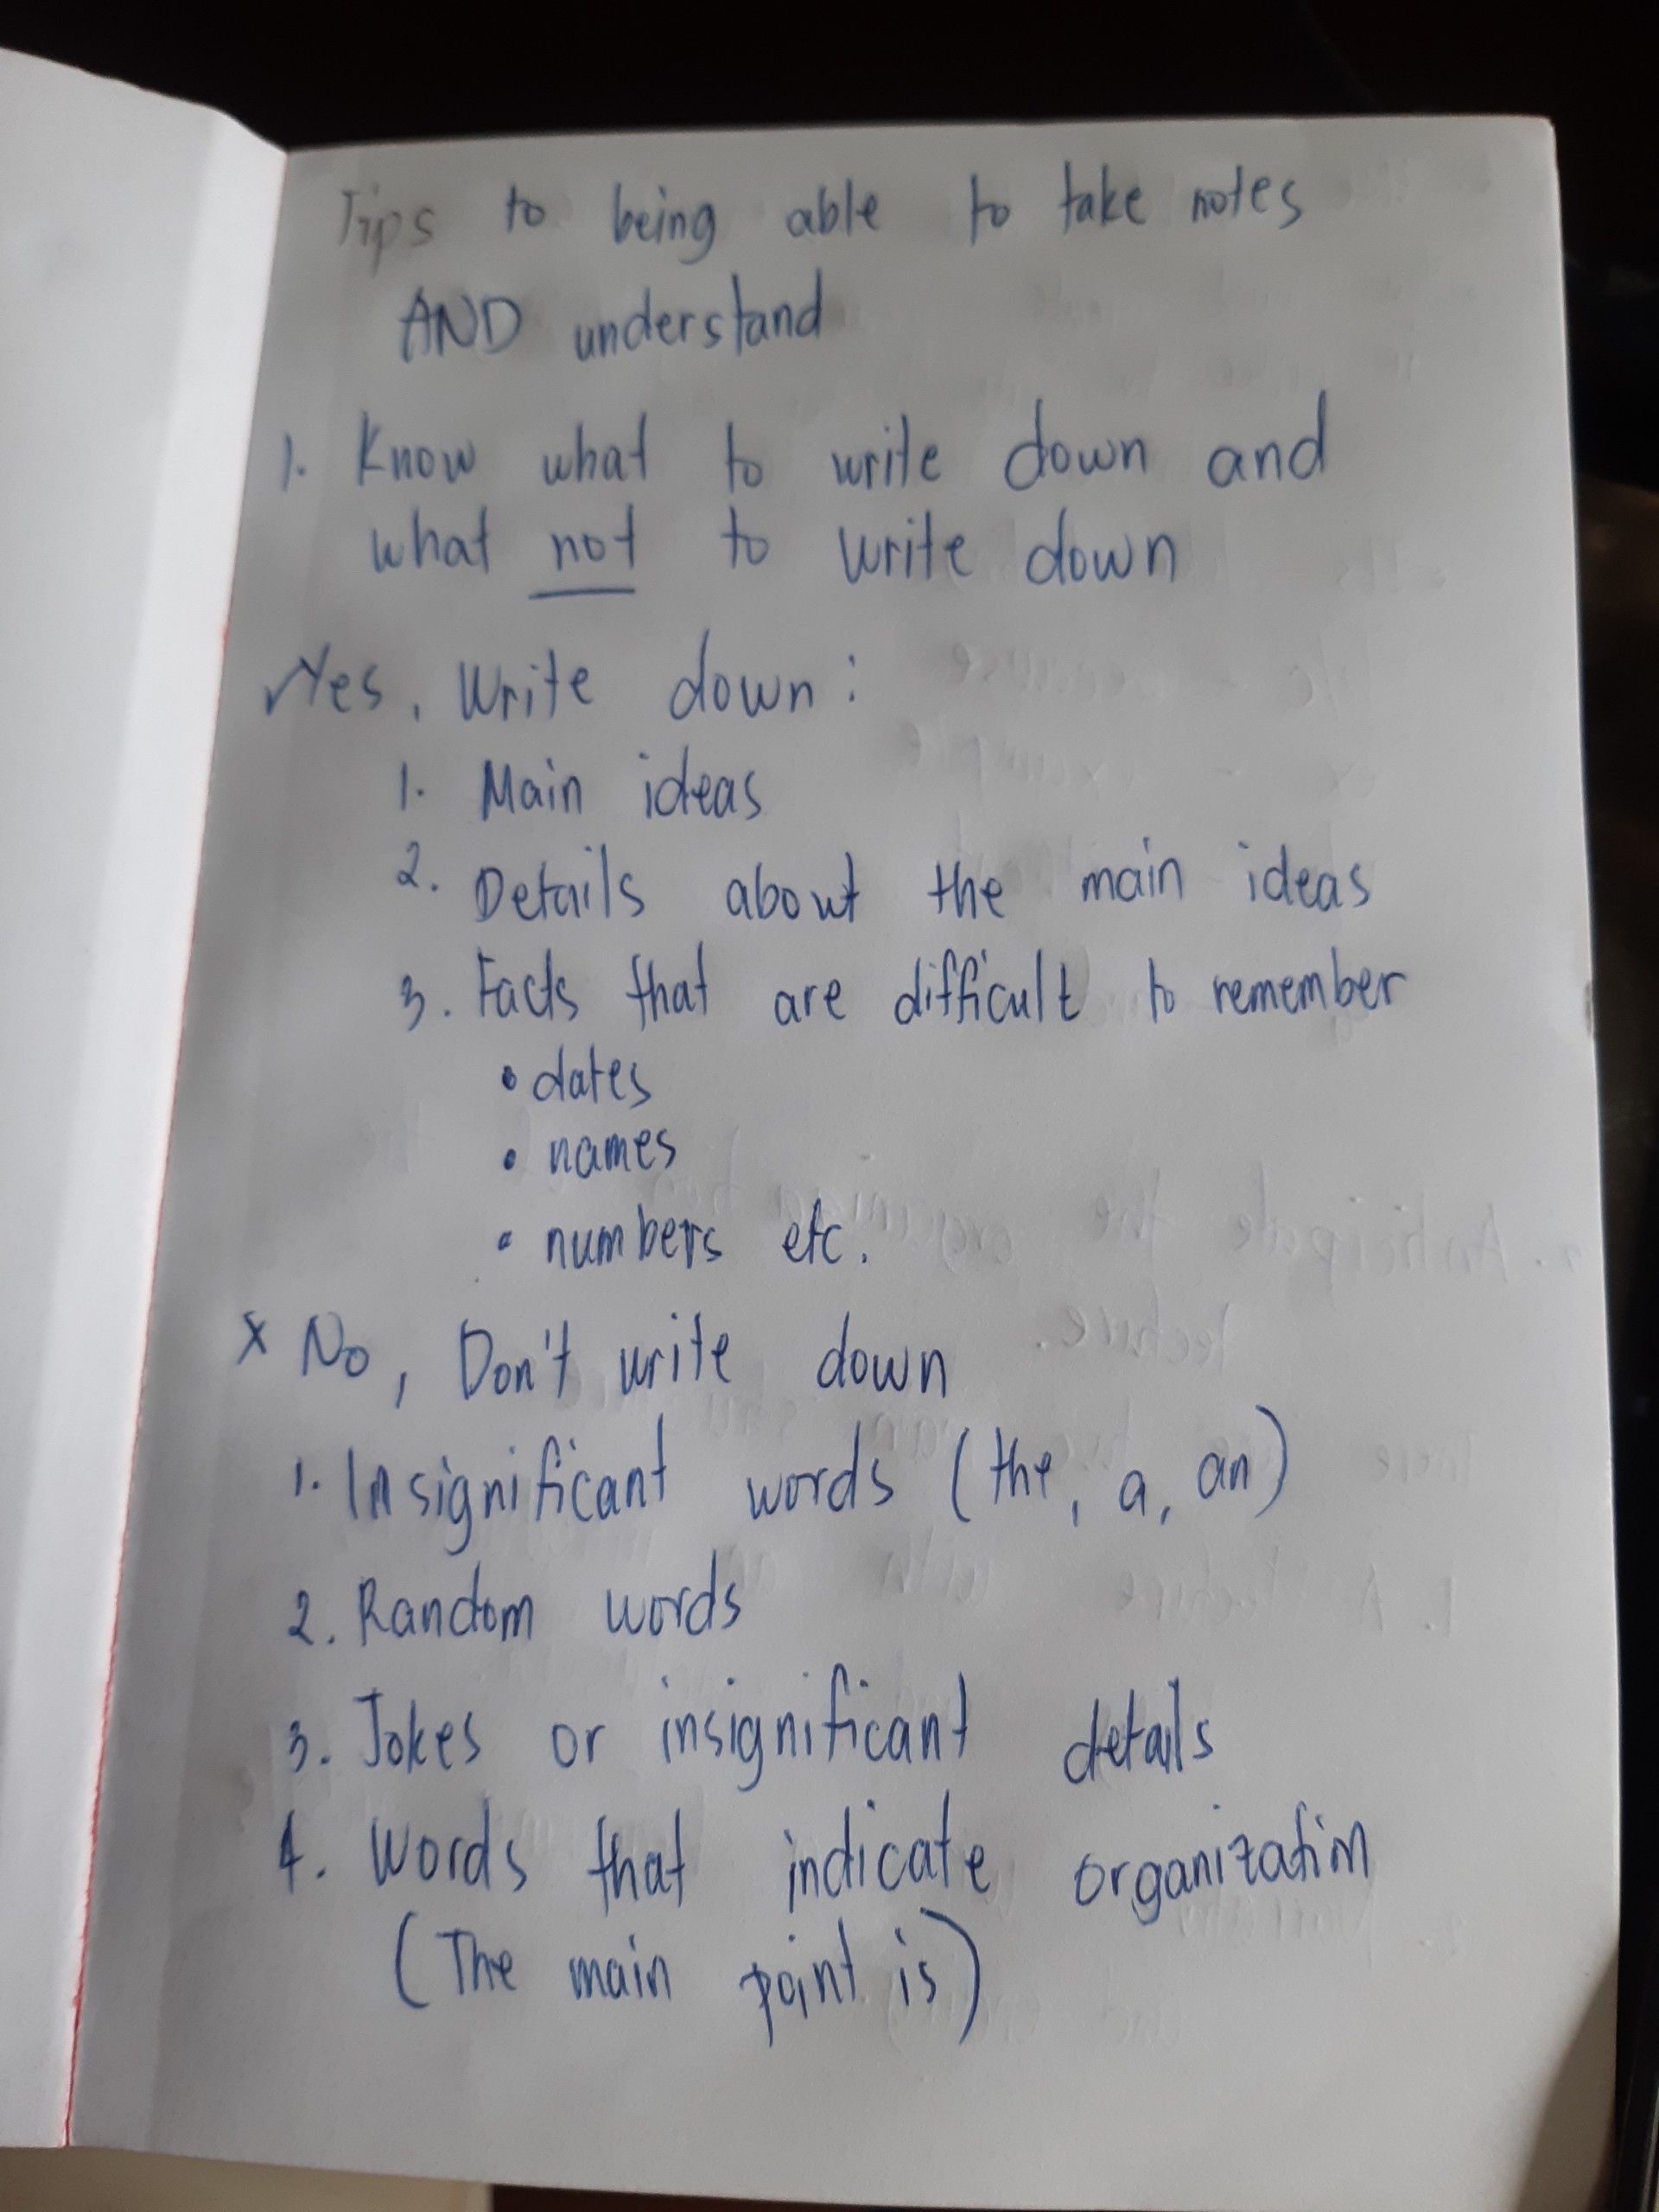 Tips to being able to take notes
AND understand
1. Know what to write down and
what not to write down
✓Yes, Write down:
1. Main ideas
2. Details about the main ideas
3. Facts that are difficult to remember
• dates
• names
• numbers etc.
x No, Don't write down
1. Insignificant words (the, a, an)
2. Random words
3. Jokes or insignificant details
4. Words that indicate organization
(The main point is)